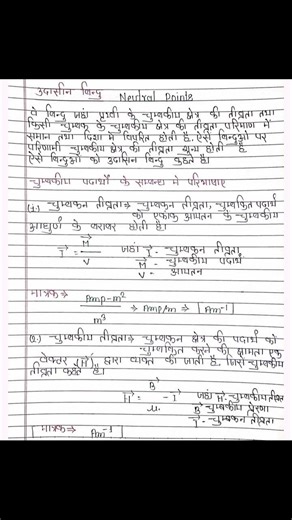 उदासीन बिन्दु
Neutral Points
वे बिन्दु जहां पृथ्वी के चुम्बकीय क्षेत्र की तीव्रता तथा
किसी चुम्बक के चुम्बकीय क्षेत्र की तीव्रता परिमाण में
समान तथा दिशा में विपरीत होती है, ऐसे बिन्दुओं पर
परिणामी चुम्बकीय क्षेत्र की तीव्रता शून्य होती है
ऐसे बिन्दुओं को उदासिन बिन्दु कहते है।
चुम्बकीय पदार्थों के सम्बन्ध में परिभाषाएं
(1.) चुम्बकन तीव्रता⇒ चुम्बकन तीव्रता, चुम्बकित पदार्थ
को एकांक आयतन के चुम्बकीय
आघुर्ण के बराबर होती है।
I→ = M→ / V जहां I→ - चुम्बकन तीव्रता
M→ - चुम्बकीय पदार्थ
V = आयतन
मात्रक⇒ Amp-m² / m³ ⇒ Amp/m ⇒ Am⁻¹
(2.) चुम्बकीय तीव्रता⇒ चुम्बकन क्षेत्र की पदार्थ को
चुम्बकित करने की क्षमता एक
वेक्टर (H→) द्वारा व्यक्त की जाती है, जिसे चुम्बकीय
तीव्रता कहते है।
H→ = B→ / μ. - I→ जहां H→ - चुम्बकीय तीव्रता
B→ - चुम्बकीय प्रेरणा
I→ - चुम्बकन तीव्रता
मात्रक⇒ Am⁻¹